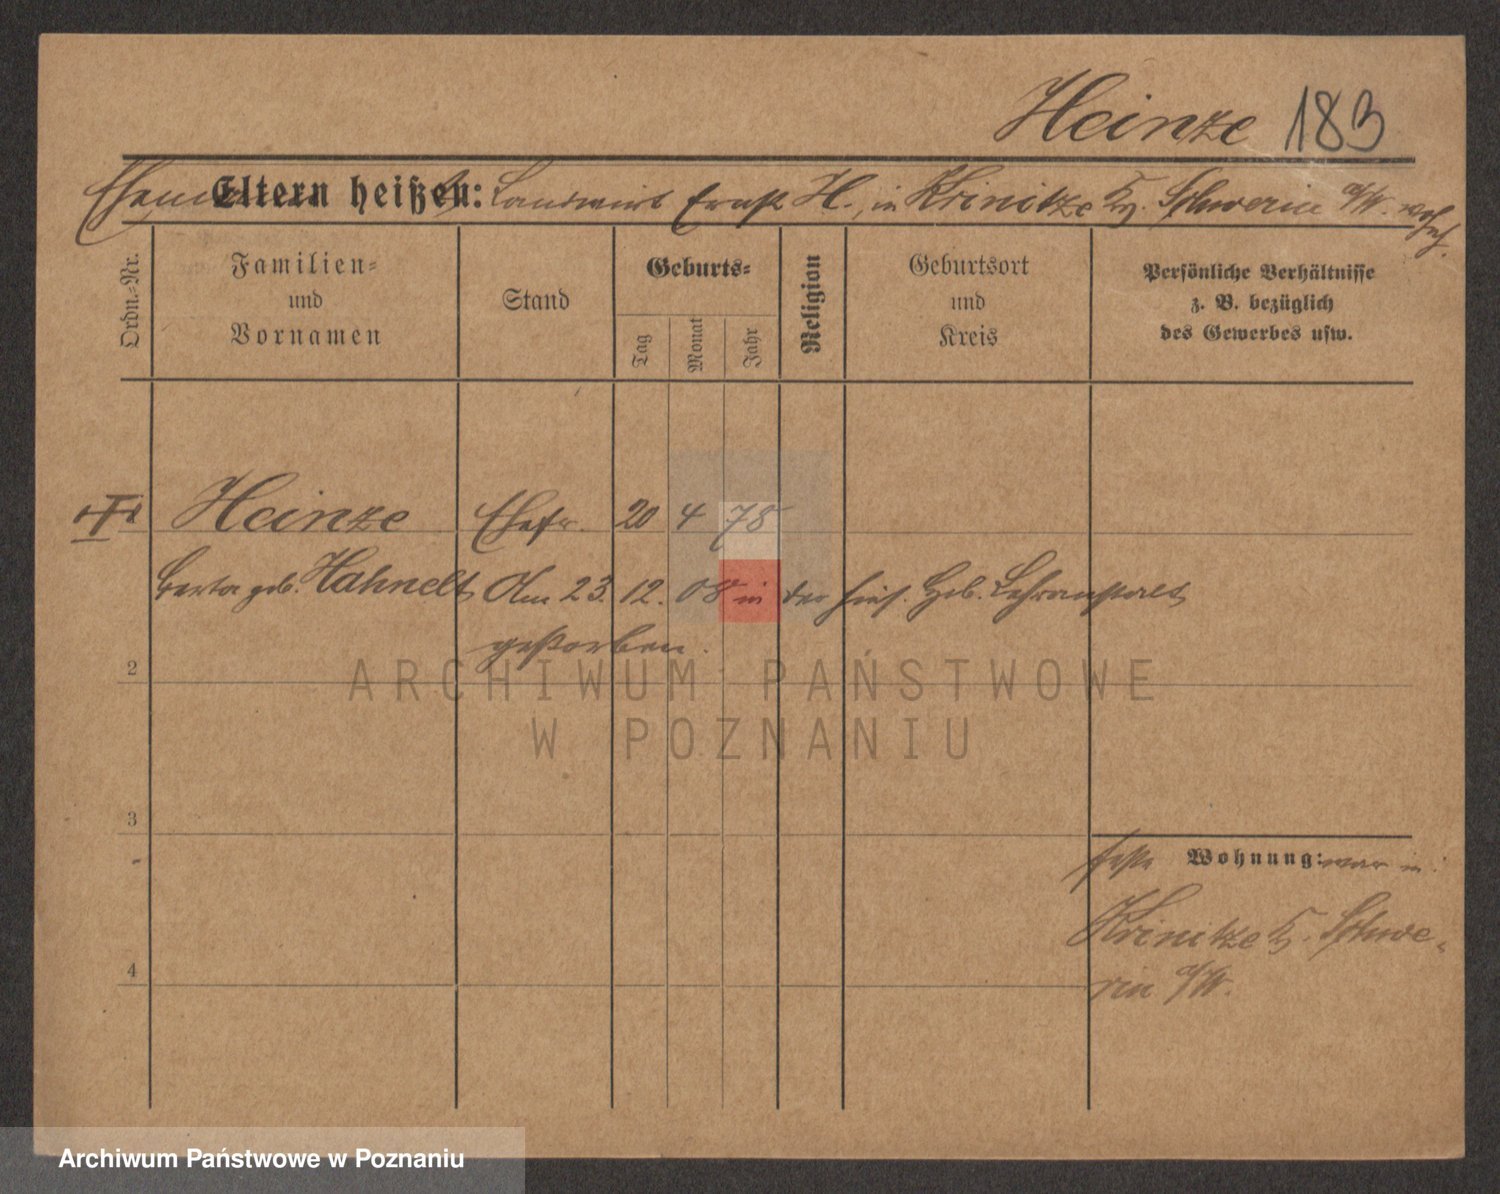 Heinze 183
Ehemann Eltern heißen: Landwirt Ernst H., in Krinitze Kr. Schwerin a/W. wohnh.
Ordn.-Nr.
Familien-
und
Vornamen
Stand
Geburts-
Tag
Monat
Jahr
Religion
Geburtsort
und
Kreis
Persönliche Verhältnisse
z. B. bezüglich
des Gewerbes usw.
Heinze Ehefr. 20 4 78
Berta geb. Hahnelt Am 23. 12. 08 in der hies. Heb. Lehranstalt
gestorben.
2
ARCHIWUM PAŃSTWOWE
W POZNANIU
3
feste Wohnung: war in
Krinitze Kr. Schwe-
rin a/W.
4
Archiwum Państwowe w Poznaniu